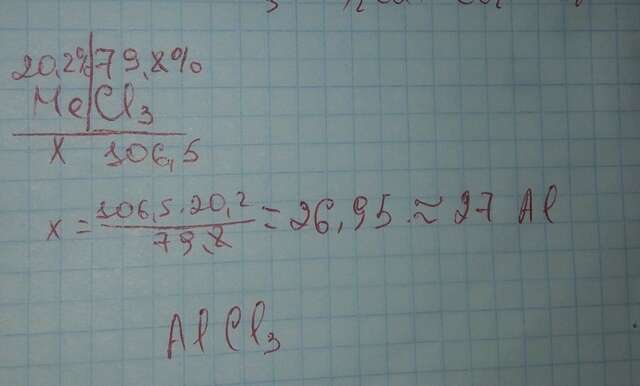 20,2% | 79,8%
Me | Cl₃
x 106,5
x = 106,5·20,2 / 79,8 = 26,95 ≈ 27 Al
AlCl₃